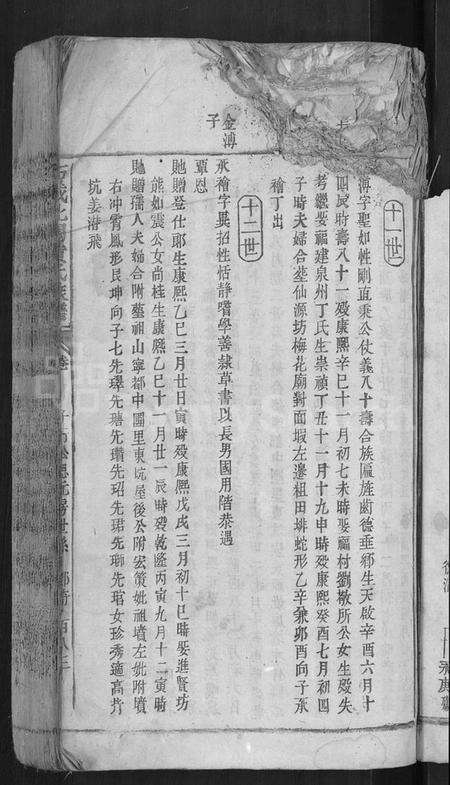 十一世
溥字聖如性剛直秉公仗義八十壽合族匾旌齒德垂鄉生天啟辛酉六月十
四戌時壽八十一歿康熙辛巳十一月初七未時娶福村劉檄所公女生歿失
考繼娶福建泉州丁氏生崇禎丁丑十一月十九申時歿康熙癸酉七月初四
子時夫婦合塟仙源坊梅花廟對面塅左邊祖田排蛇形乙辛兼卯酉向子承
禬丁出
十二世
金溥
子
承禬字異招性恬靜嗜學善隸草書以長男國用階恭遇
覃恩
馳贈登仕郎生康熙乙巳三月廿日寅時歿康熙戊戌三月初十巳時娶進賢坊
熊如震公女尚桂生康熙乙巳十一月廿一辰時歿乾隆丙寅九月十二寅時
馳贈孺人夫婦合附塟祖山寧都中團里東坑屋後
右冲霄鳳形艮坤向子七先
坑姜濳飛